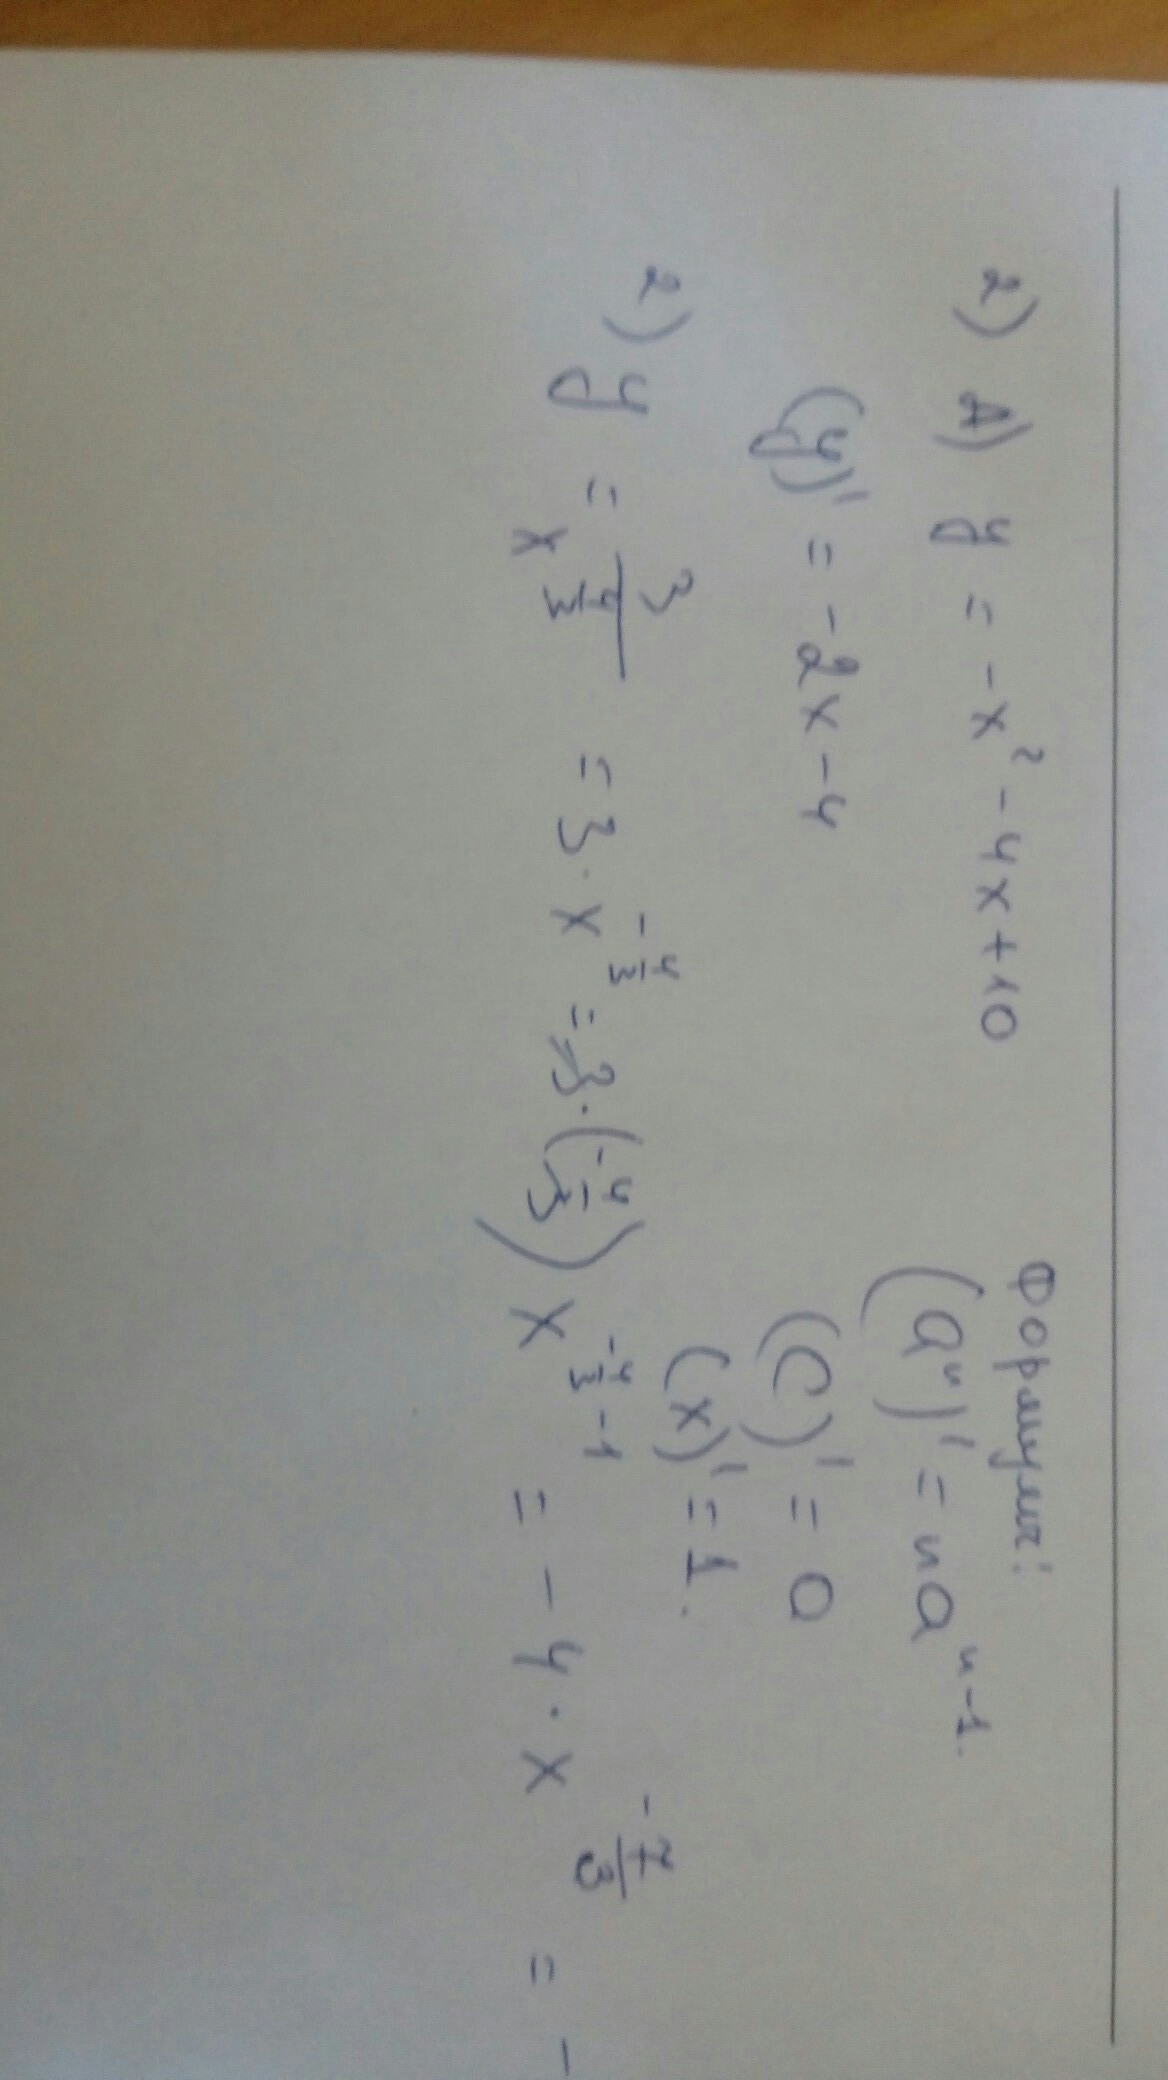 2) A) y = -x² - 4x + 10
Формулы:
(y)' = -2x - 4
(aⁿ)' = naⁿ⁻¹.
(C)' = 0
(x)' = 1.
2) y = 3/x^(4/3) = 3 · x^(-4/3) = 3 · (-4/3) x^(-4/3 - 1) = -4 · x^(-7/3) = -